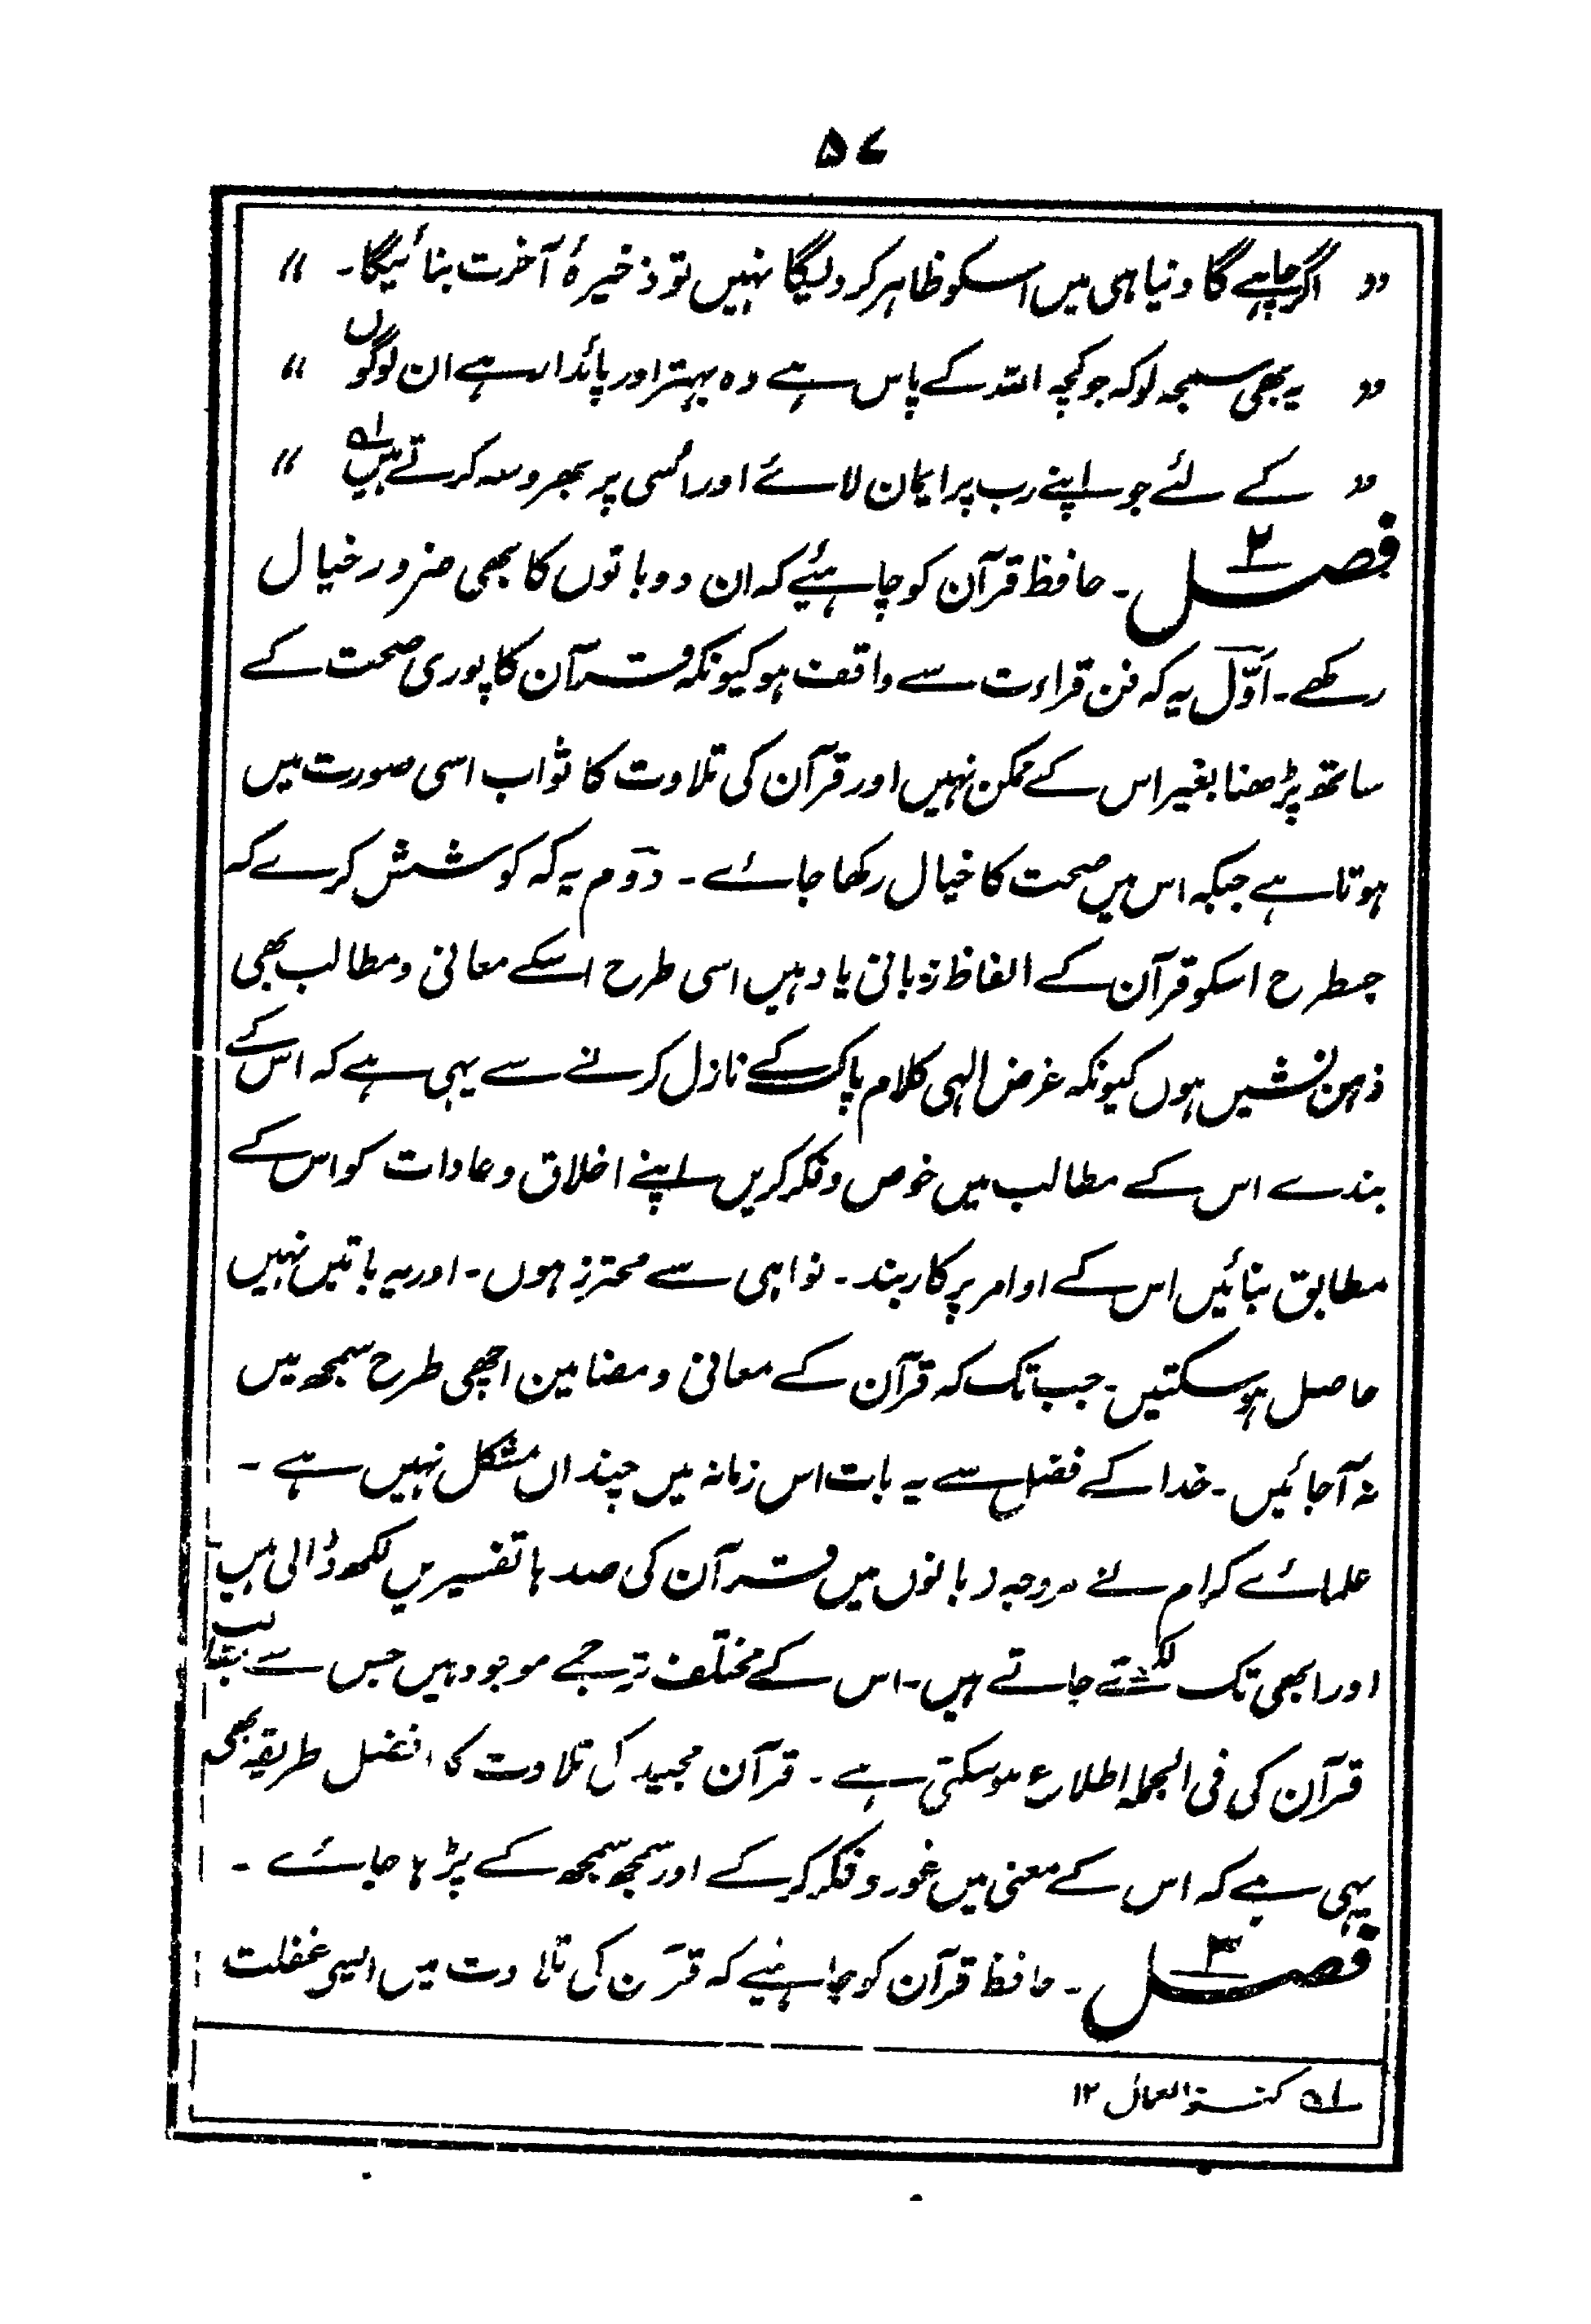 ۵۷
“ اگر چاہے گا دنیا ہی میں اسکو ظاہر کر دیگا نہیں تو ذخیرۂ آخرت بنائیگا۔ ”
“ یہ بھی سمجھ لو کہ جو کچھ اللہ کے پاس ہے وہ بہتر اور پائدار ہے ان لوگوں ”
“ کے لئے جو اپنے رب پر ایمان لائے اور اُسی پر بھروسہ کرتے ہیں ؎۱ ”
فصل ۲ ۔ حافظ قرآن کو چاہئیے کہ ان دو باتوں کا بھی ضرور خیال
رکھے۔ اوّل یہ کہ فن قراءت سے واقف ہو کیونکہ قرآن کا پوری صحت کے
ساتھ پڑھنا بغیر اس کے ممکن نہیں اور قرآن کی تلاوت کا ثواب اسی صورت میں
ہوتا ہے جبکہ اس میں صحت کا خیال رکھا جائے ۔ دوم یہ کہ کوشش کرے کہ
جسطرح اسکو قرآن کے الفاظ زبانی یاد ہیں اسی طرح اسکے معانی و مطالب بھی
ذہن نشیں ہوں کیونکہ غرض الٰہی کلام پاک کے نازل کرنے سے یہی ہے کہ اس کے
بندے اس کے مطالب میں خوص و فکر کریں اپنے اخلاق و عادات کو اس کے
مطابق بنائیں اس کے اوامر پر کاربند ۔ نواہی سے محترز ہوں ۔ اور یہ باتیں نہیں
حاصل ہو سکتیں۔ جب تک کہ قرآن کے معانی و مضامین اچھی طرح سمجھ میں
نہ آجائیں ۔ خدا کے فضل سے یہ بات اس زمانہ میں چنداں مشکل نہیں ہے ۔
علمائے کرام نے مروجہ زبانوں میں قرآن کی صدہا تفسیریں لکھ ڈالی ہیں
اور ابھی تک لکھتے جاتے ہیں ۔ اس کے مختلف ترجمے موجود ہیں جس سے مطالب
قرآن کی فی الجملہ اطلاع ہو سکتی ہے ۔ قرآن مجید کی تلاوت کا افضل طریقہ بھی
یہی ہے کہ اس کے معنی میں غور و فکر کر کے اور سمجھ سمجھ کے پڑہا جائے ۔
فصل ۳ ۔ حافظ قرآن کو چاہئیے کہ قرآن کی تلاوت میں ایسی غفلت
؎۱ کنز العمال ۱۲